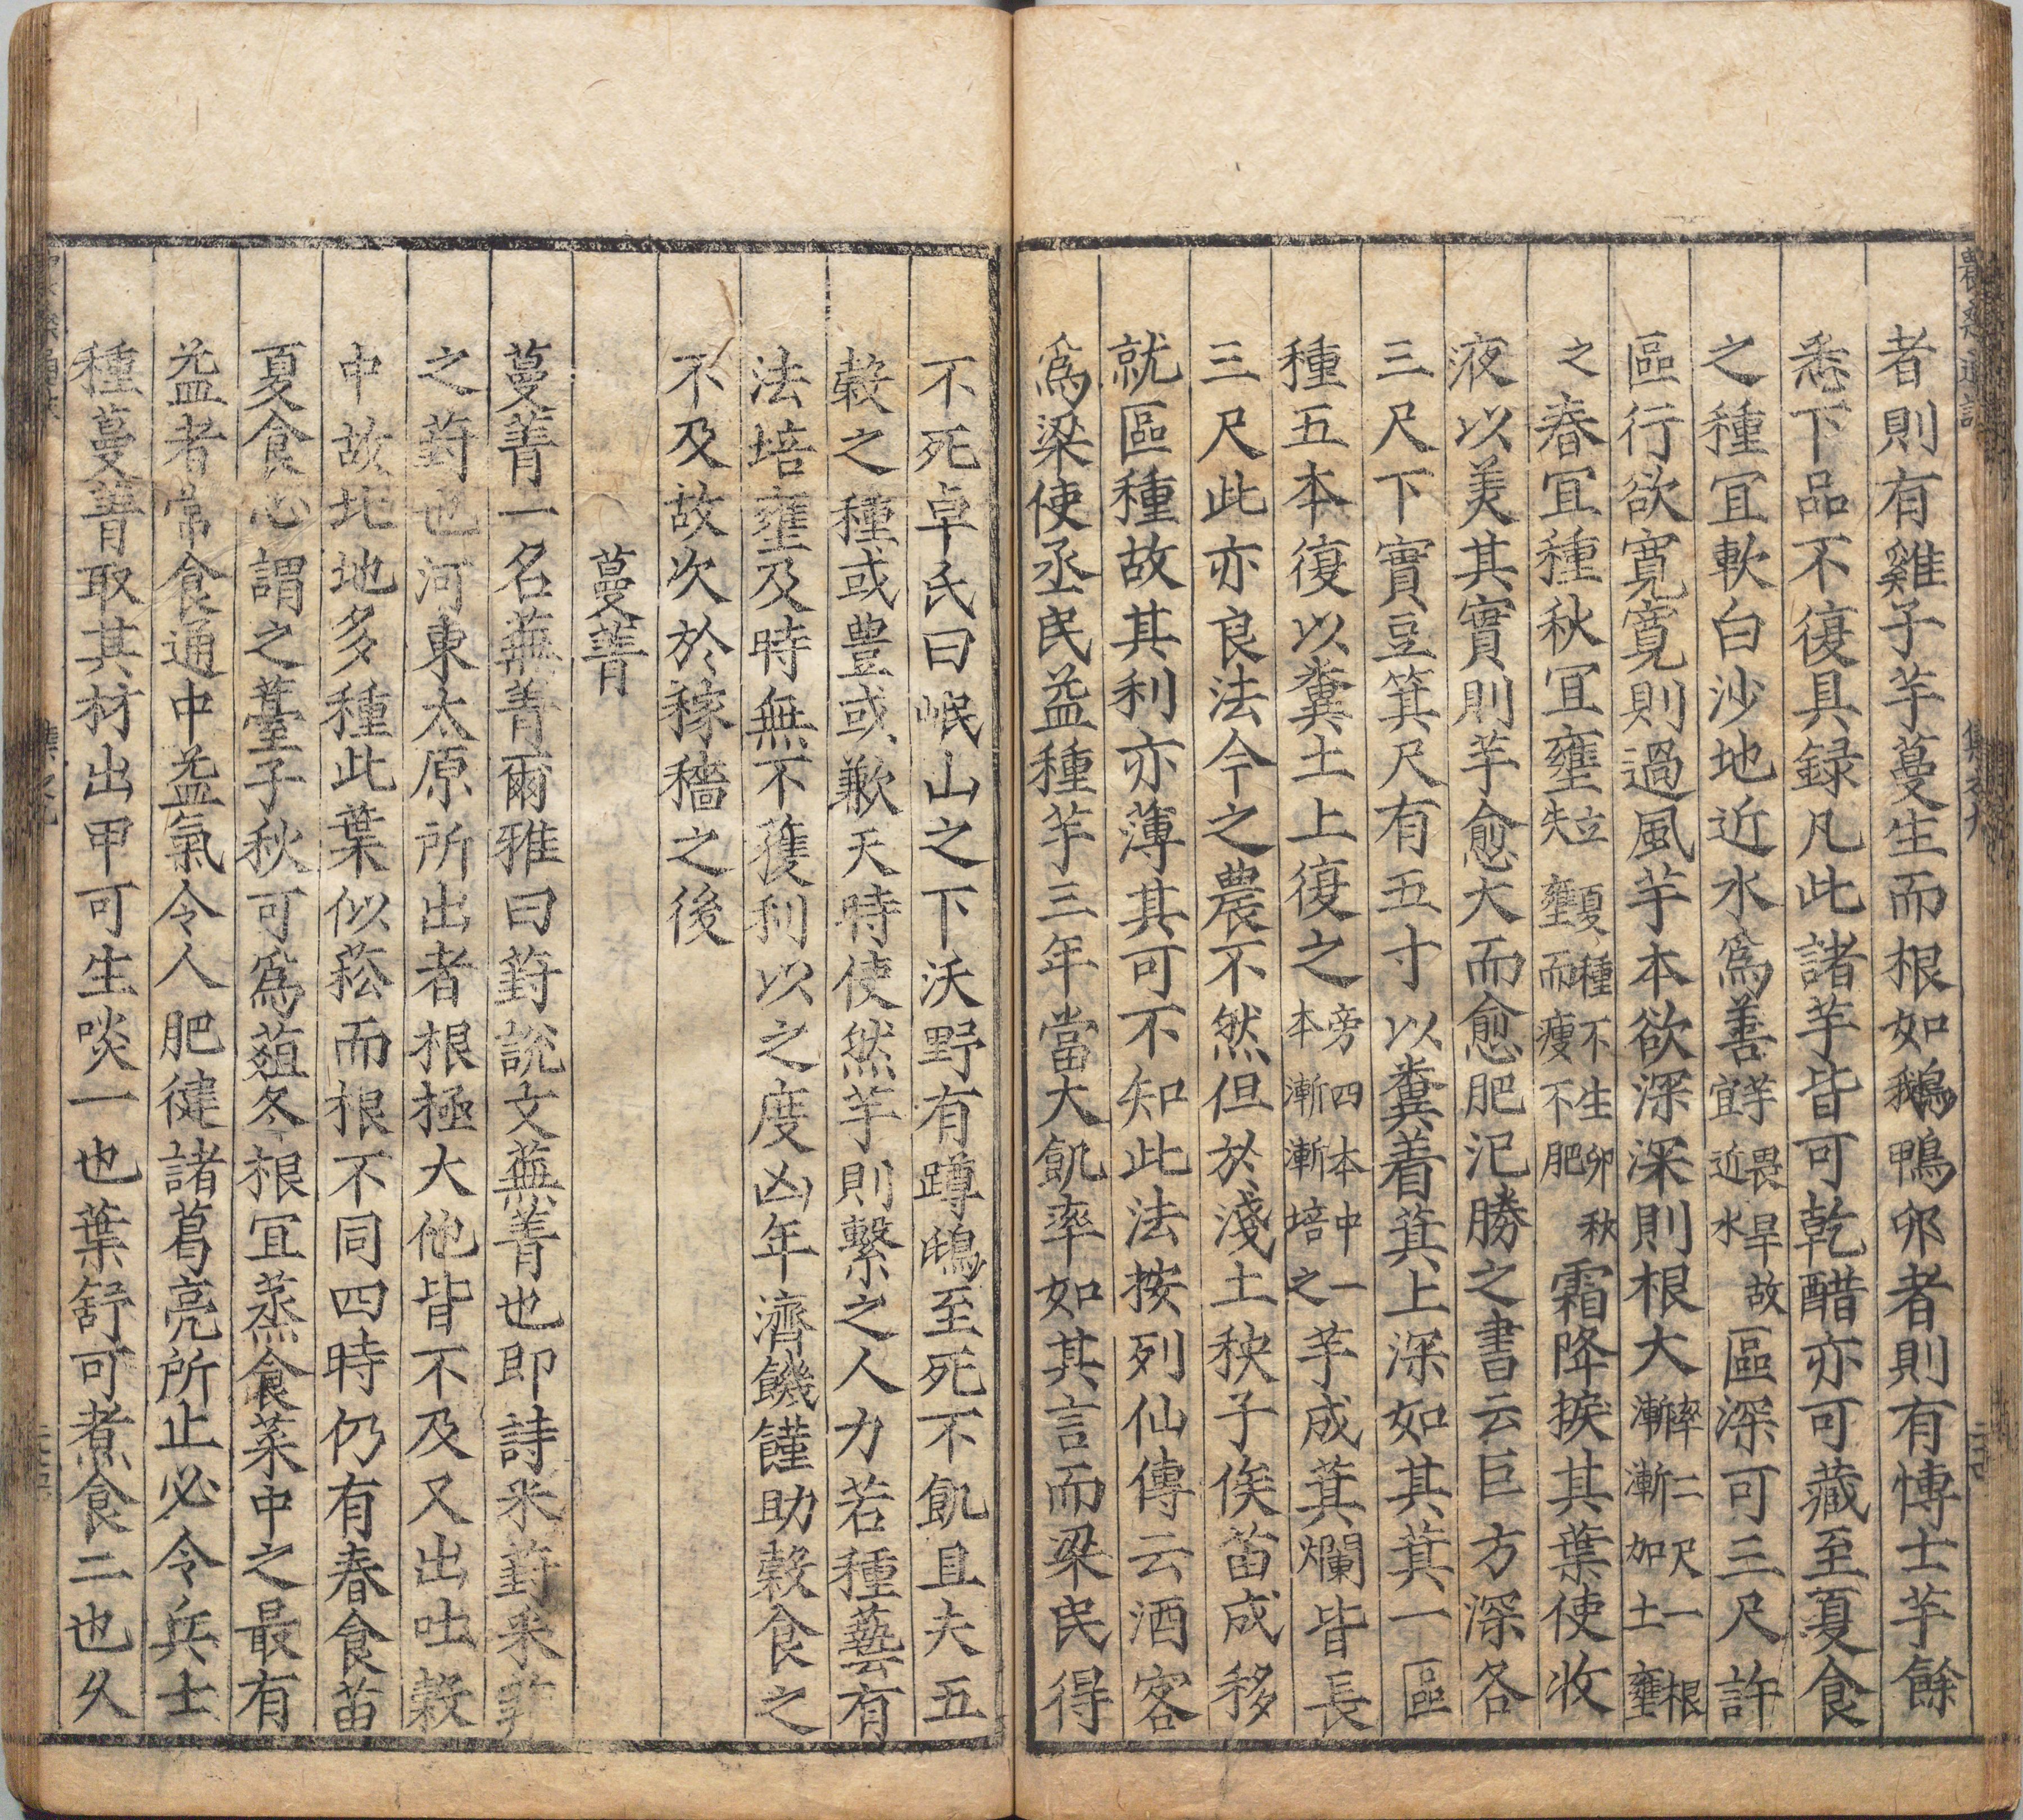 者則有雞子芋蔓生而根如鵝鴨卵者則有博士芋餘
悉下品不復具録凡此諸芋皆可乾醋亦可藏至夏食
之種冝軟白沙地近水爲善芋畏旱故宜近水區深可三尺許
區行欲寛寛則過風芋本欲深深則根大率二尺一根漸漸加土壅
之春冝種秋冝壅立夏種不生卵秋失壅而瘦不肥霜降捩其葉使收
液以美其實則芋愈大而愈肥氾勝之書云區方深各
三尺下實豆箕尺有五寸以糞着箕上深如其箕一區
種五本復以糞土上復之旁四本中一本漸漸培之芋成箕爛皆長
三尺此亦良法今之農不然但於淺土秧子俟苗成移
就區種故其利亦薄其可不知此法按列仙傳云酒客
爲梁使丞民益種芋三年當大飢率如其言而梁民得
不死卓氏曰岷山之下沃野有蹲鴟至死不飢且夫五
穀之種或豊或歉天時使然芋則繫之人力若種藝有
法培壅及時無不獲利以之度凶年濟饑饉助穀食之
不及故次於稼穡之後
蔓菁
蔓菁一名蕪菁爾雅曰葑説文蕪菁也即詩釆葑釆菲
之葑也河東太原所出者根極大他皆不及又出吐穀
中故北地多種此葉似菘而根不同四時仍有春食苗
夏食心謂之薹子秋可爲葅冬根冝蒸食菜中之最有
益者常食通中益氣令人肥健諸葛亮所止必令兵士
種蔓菁取其材出甲可生啖一也葉舒可煮食二也久